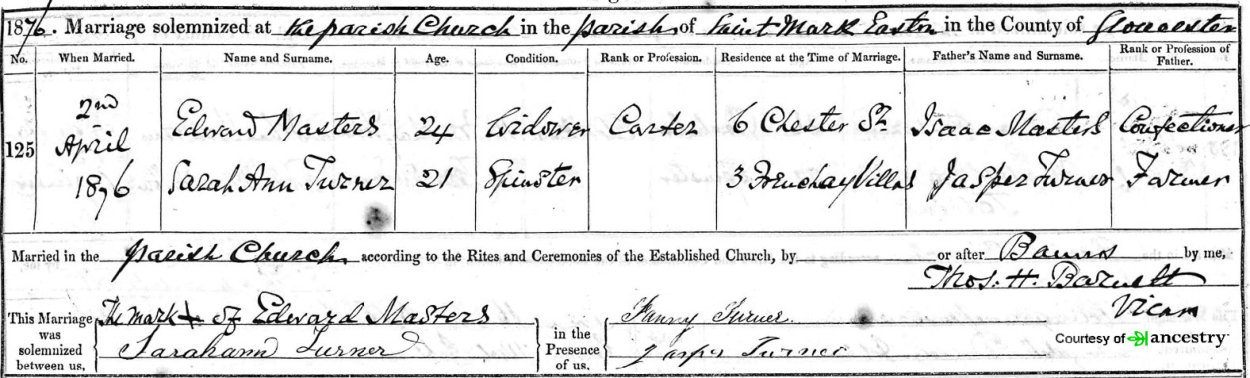 1876. Marriage solemnized at the parish Church in the parish of Saint Mark Easton in the County of Gloucester
No. When Married. Name and Surname. Age. Condition. Rank or Profession. Residence at the Time of Marriage. Father's Name and Surname. Rank or Profession of Father.
125 2nd April 1876
Edward Masters 24 Widower Carter 6 Chester St Isaac Masters Confectioner
Sarah Ann Turner 21 Spinster 3 Frenchay Villas Jasper Turner Farmer
Married in the parish Church according to the Rites and Ceremonies of the Established Church, by or after Banns by me,
Thos. H. Barnett
Vicar
This Marriage was solemnized between us,
The mark + of Edward Masters
Sarahann Turner
in the Presence of us.
Fanny Turner
Jasper Turner
Courtesy of ancestry